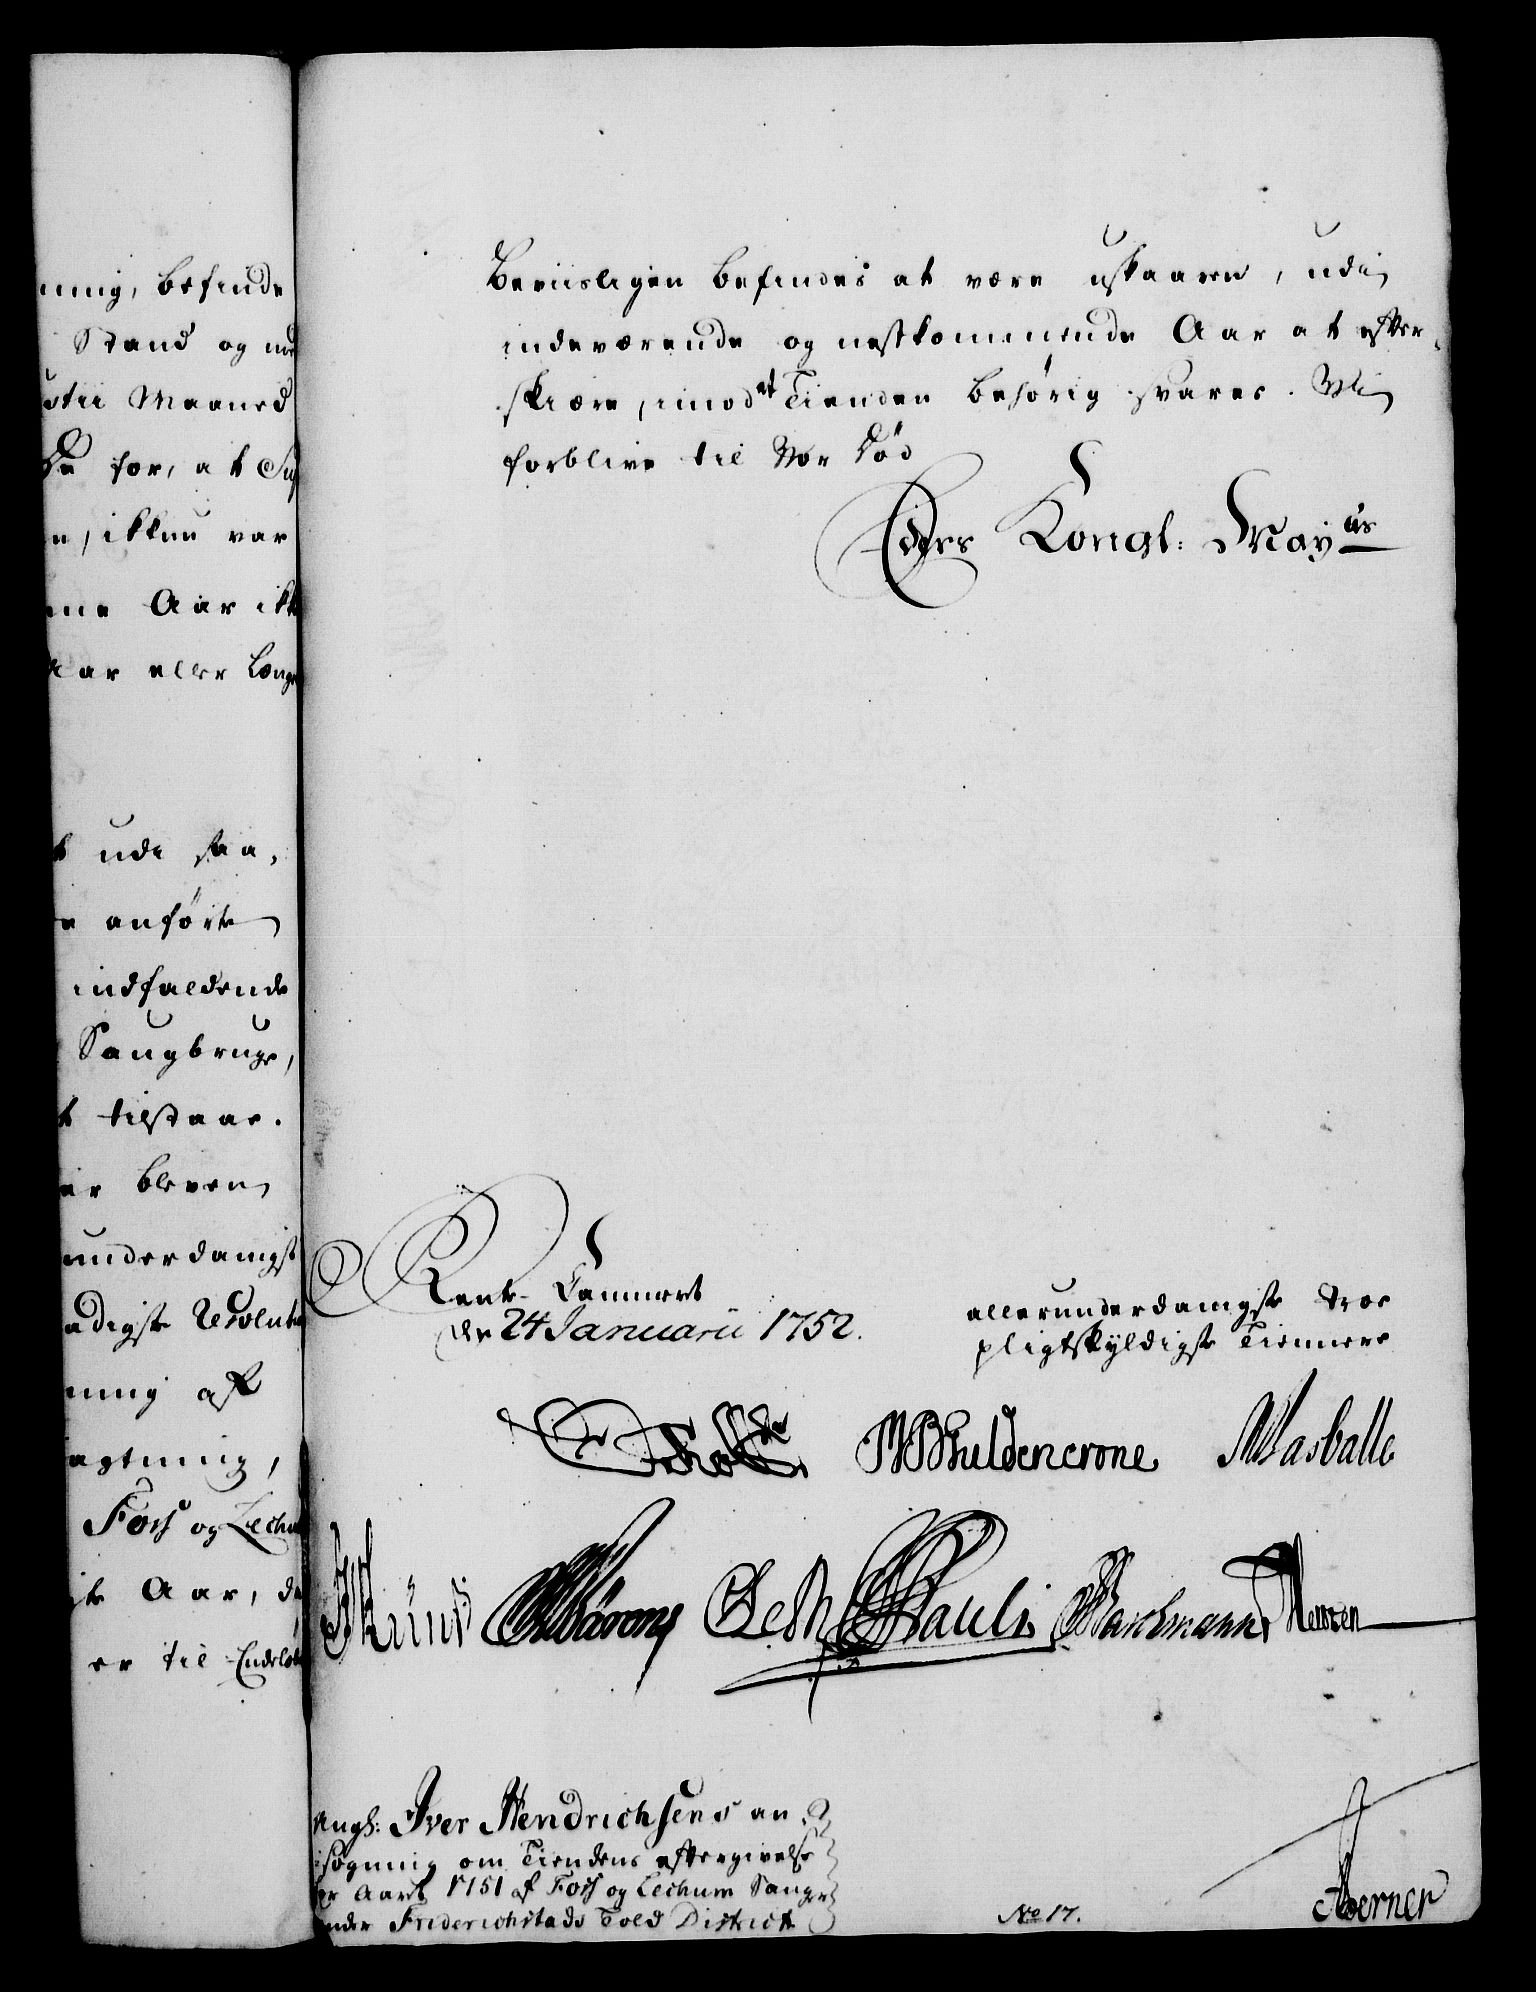 ning, befinde
Stand og med
ustii Maaned
for, at
n, ikkun var
ne Aar ikke
Aar eller længe
t udi saa,
e anførte
indfaldende
Saugbruge,
t tilstaae.
er bleven
underdanigst
adigste Resolution
ning af
agtning,
Foss og Lechum
te Aar, de
er til Endeløs
Beviisligen befindes at være uskaaren, udi
indeværende og nestkommende Aar at efter-
skiære, imod at Tienden behørig svares. Vi
forblive til Vor Død
Eders Kongl: Mayts
Rente-Kammeret
den 24 Januarii 1752.
allerunderdanigste troe
pligtskyldigste Tiennere
Holst WBGuldencrone Masballe
Pauli Barchmann
Angl: Iver Hendrichsens an-
søgning om Tiendens eftergivelse
for Aaret 1751 af Foss og Lechum Sauge
under Friderichstads Told District
No 17.
Koerner